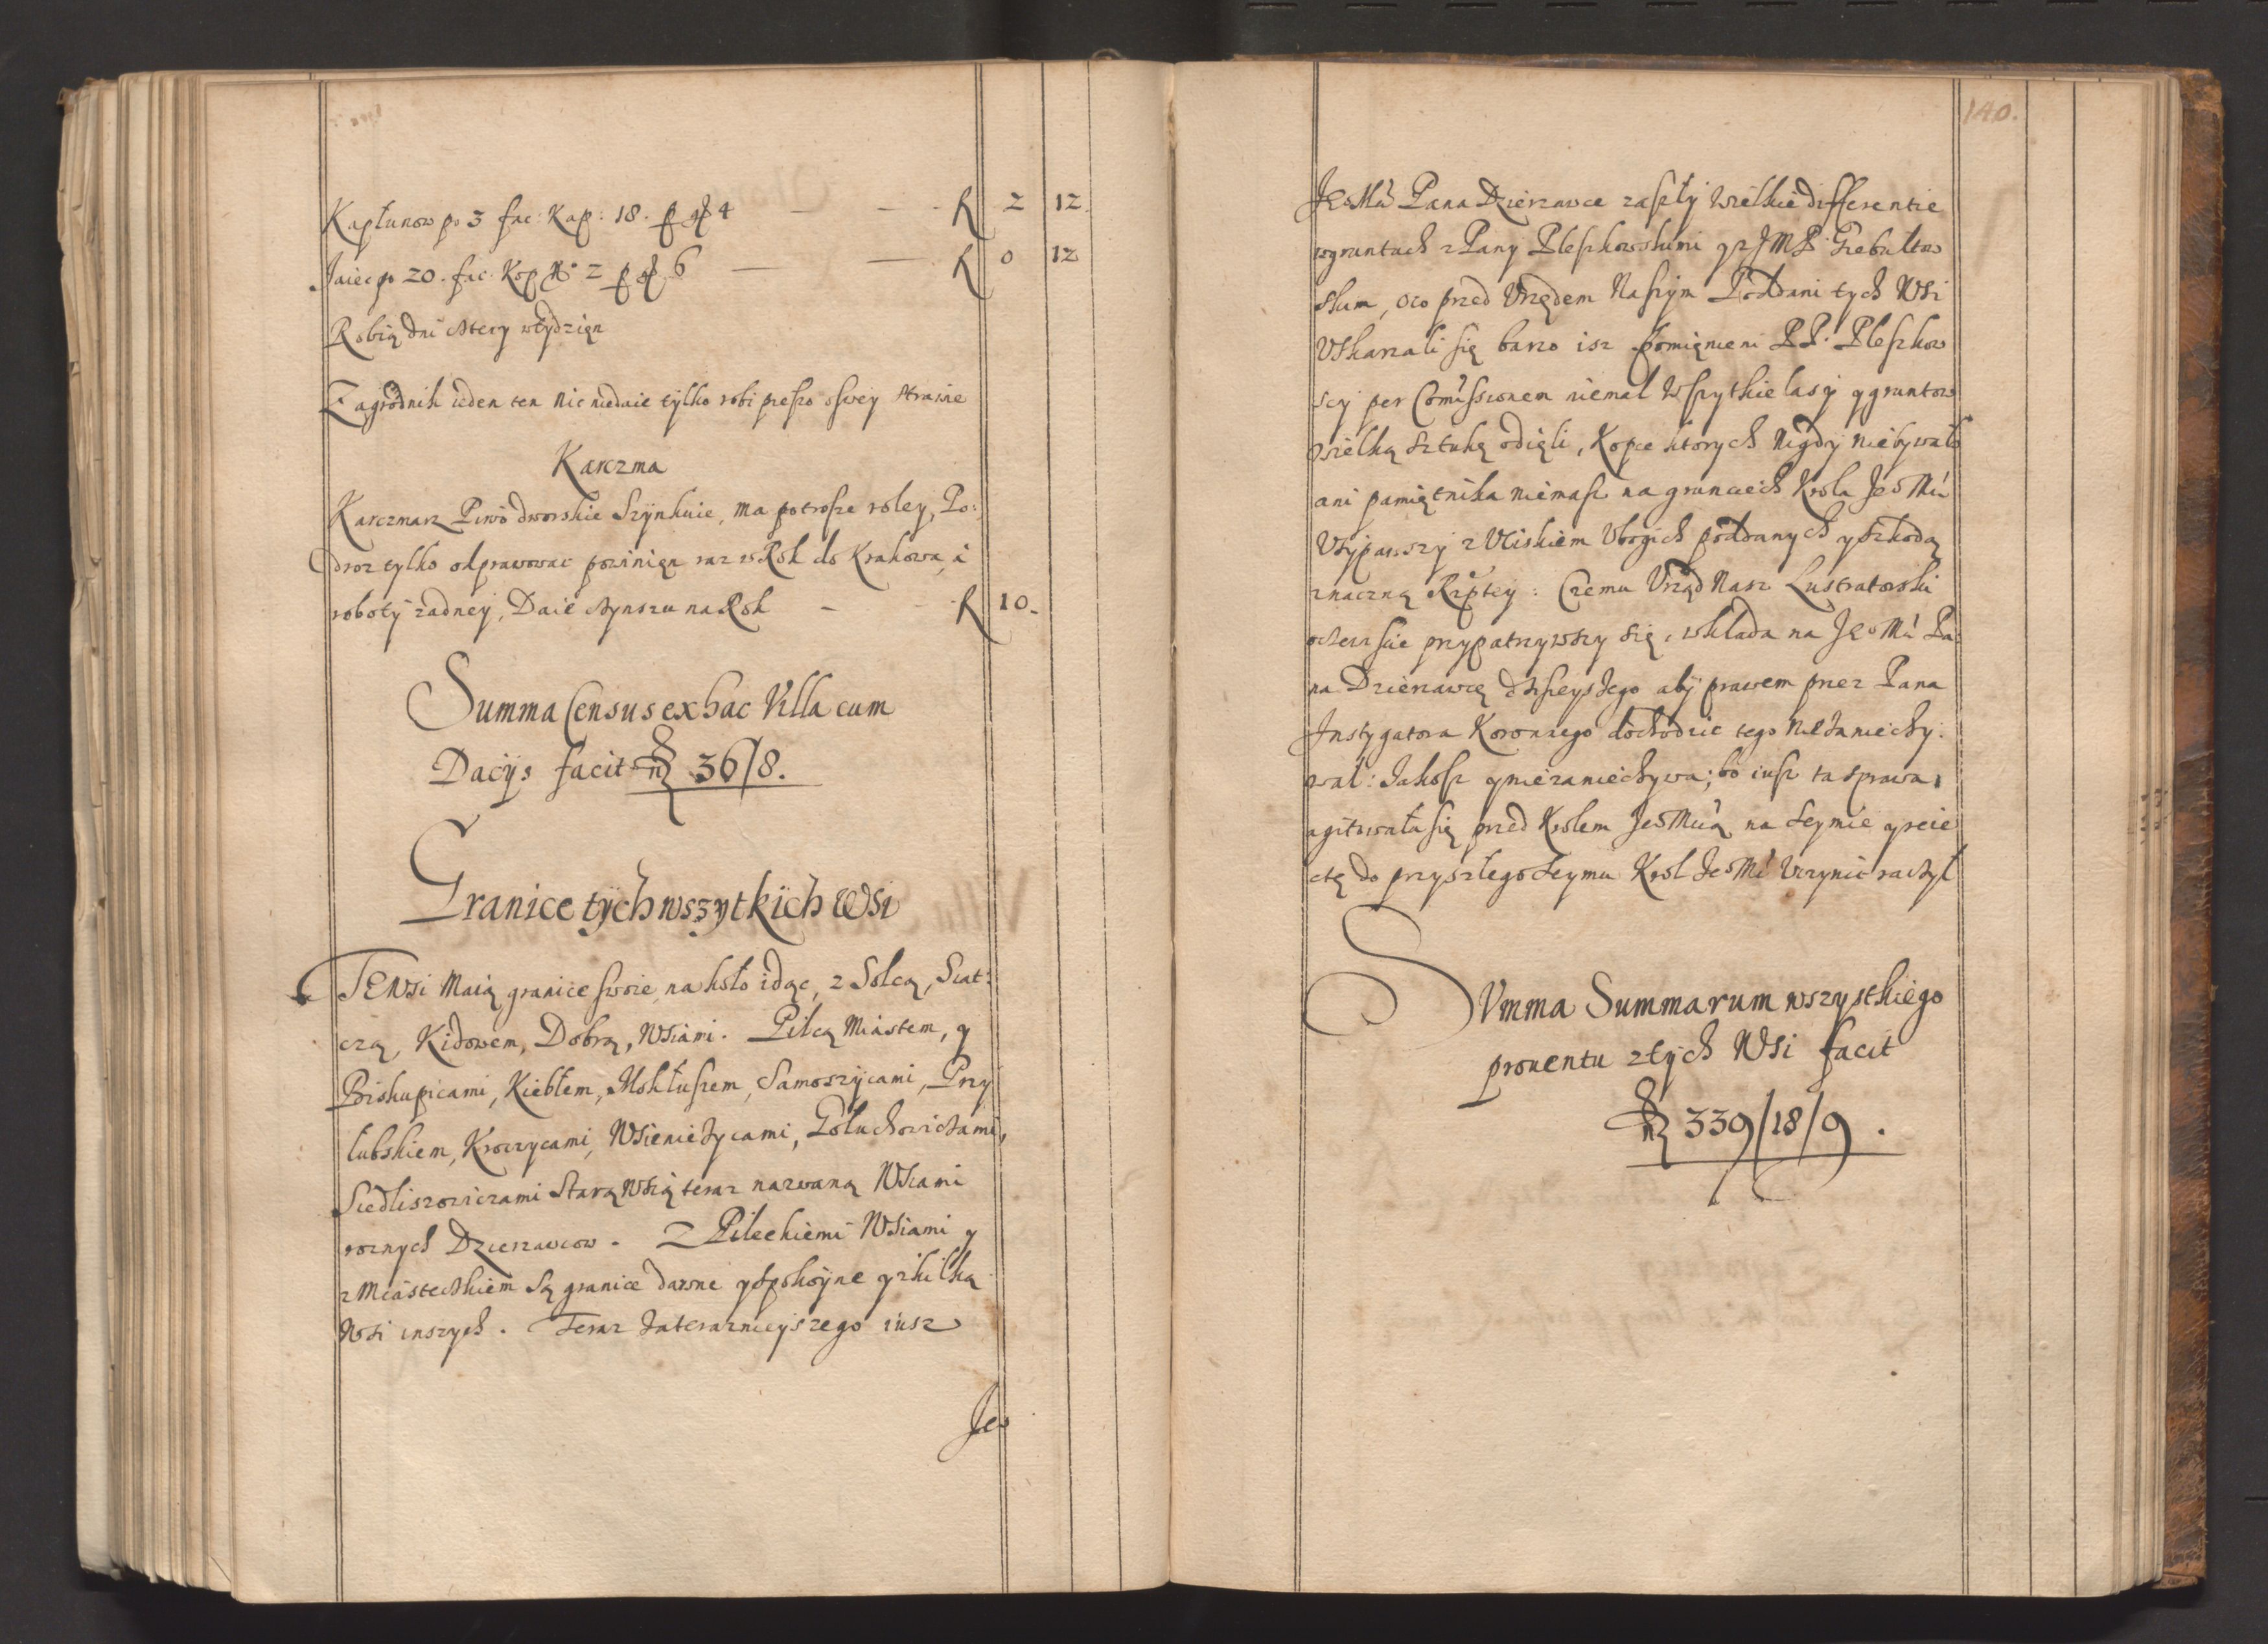 Kapłunow po 3 fac: Kap: 18. p gr 4 — — — fl 2 12.
Jaiec po 20. fac. Kop No 2 p gr 6 — — fl 0 12
Robią dni cztery wtydzięn
Zagrodnik ieden ten nic niedaie tylko robi pieszo oswey strawie
Karczma
Karczmarz Piwo dworskie Szynkuie, ma potrosze roley, Po:
droz tylko odprawowac powinięn raz w Rok do Krakowa, a
roboty zadney, Daie czynszu na Rok — — fl 10 -
Summa Census ex hac Villa cum
Dacijs facit 36/8.
Granice tych wszytkich Wsi
TE Wsi Maią granice swoie, na koło idąc, z Solcą, Siat:
czą, Kidowem, Dobrą, Wsiami. Pilcą Miastem, y
Biskupicami, Kiebłem, Mokłuszem, Samoszycami, Przy
łubskiem, Kroczycami, Wsieniczycami, Gołuchowiczami,
Siedliszowiczami Starą Wsią teraz nazwaną Wsiami
roznych Dzierzawcow. Z Pileckiemi Wsiami y
z Miasteczkiem Są granice dawne y spokoyne y zkilką
Wsi inszych. Teraz zateraznieyszego iusz
Jeo
140.
JEo Mci Pana Dzierzawce zaszły wielkie differentie
wgruntach z Pany Pleszkowskimi y z JMP. Grebułtow
skim, oco przed Urzędem Naszym Poddani tych Wsi
Uskarzali się barzo isz pomięnieni PP. Pleszkow
scy per Comissionem niemal Wszytkie lasy y gruntow
wielką sztukę odięli, Kopce ktorych nigdy niebywało
ani pamiętnika niemasz na grunciech Krola Jeo Mci
Usypawszy z Uciskiem Ubogich poddanych y szkodą
znaczną Rzptey: Czemu Urząd Nasz Lustratorski
oczewiście przypatrzywszy się, wkłada na JEo Mci Pa:
na Dzierzawcę dzisieyszego aby prawem przez Pana
Instygatora Koronnego dochodzic tego nie zaniechy:
wał: Jakosz y niezaniechywa; bo iusz ta sprawa,
agitowała się przed Krolem Jeo Mcią na Seymie y reie
ctę do przyszłego Seymu Krol Jeo Mć Uczynic raczył
SUmma Summarum wszystkiego
prouentu z tych Wsi facit
339/18/9.